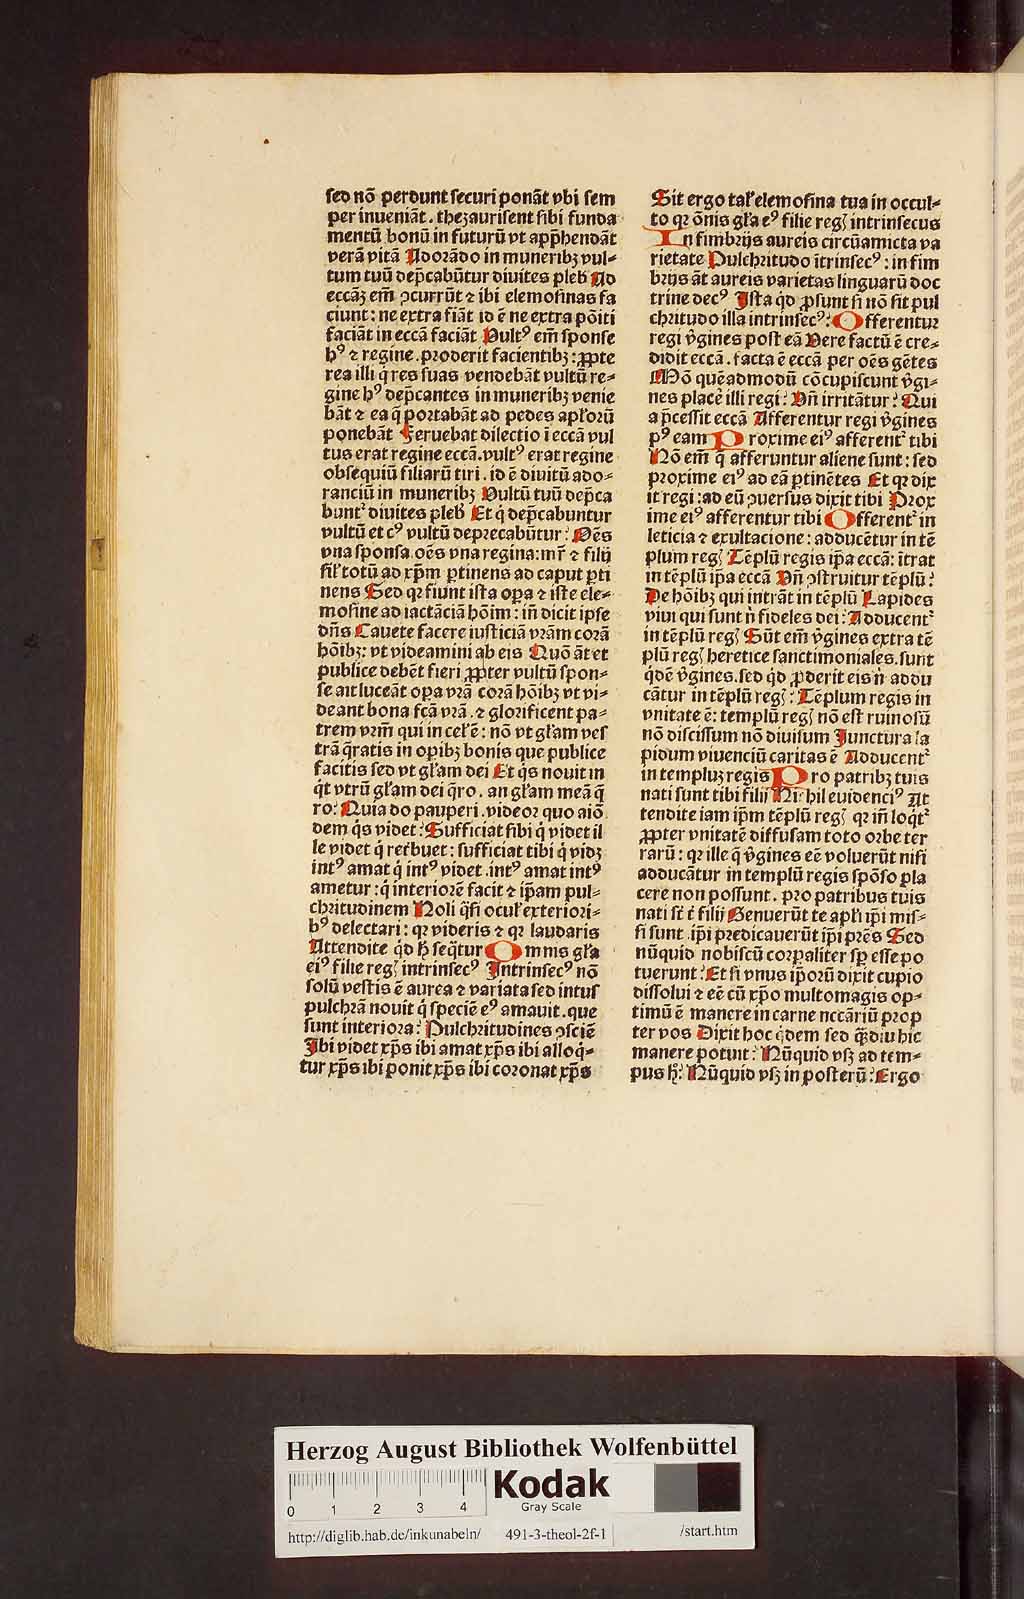 sed nō perdunt securi ponāt vbi sem
per inueniāt. thezaurisent sibi funda
mentū bonū in futurū vt app̄hendāt
verā vitā Adorādo in muneribꝫ vul⸗
tum tuū dep̄cabūtur diuites pleb̄ Ad
eccāꝫ em̄ ꝯcurrūt ⁊ ibi elemosinas fa
ciunt: ne extra fiāt id ē ne extra pōiti
faciāt in eccā faciāt Vultꝰ em̄ sponse
hꝰ ⁊ regine. proderit facientibꝫ: ꝓpte
rea illi q̄ res suas vendebāt vultū re⸗
gine hꝰ dep̄cantes in muneribꝫ venie
bāt ⁊ ea q̄ portabāt ad pedes apl̄orū
ponebāt Feruebat dilectio ī eccā vul
tus erat regine eccā. vultꝰ erat regine
obsequiū filiarū tiri. id ē diuitū ado⸗
ranciū in muneribꝫ Vultū tuū dep̄ca
bunt᷑ diuites pleb̄ Et q̇ dep̄cabuntur
vultū et cꝰ vultū deprecabūtur? Oēs
vna sponsa oēs vna regina: mr̄ ⁊ filij
sil̄ totū ad xp̄m ꝑtinens ad caput ꝑti
nens Sed qꝛ fiunt ista oꝑa ⁊ iste ele⸗
mosine ad iactāciā hōim: in̄ dicit ipse
dn̄s Cauete facere iusticiā vr̄am corā
hōibꝫ: vt videamini ab eis Quō āt et
publice debēt fieri ꝓpter vultū spon⸗
se ait luceāt oꝑa vr̄a corā hōibꝫ vt vi⸗
deant bona fcā vr̄a. ⁊ glorificent pa⸗
trem vr̄m qui in cel̄ ē: nō vt gl̄am ves
trā q̄ratis in oꝑibꝫ bonis que publice
facitis sed vt gl̄am dei Et q̇s nouit in
q̇t vtrū gl̄am dei q̄ro. an gl̄am meā q̄
ro: Quia do pauperi. videor quo aīo
dem q̇s videt? Sufficiat sibi q̇ videt il
le videt q̇ ret̄buet: sufficiat tibi q̇ vidꝫ
intꝰ amat q̇ intꝰ videt. intꝰ amat intꝰ
ametur: q̇ interiorē facit ⁊ ip̄am pul⸗
chritudinem Noli q̄si ocul̄ exteriori⸗
bꝰ delectari: qꝛ videris ⁊ qꝛ laudaris
Attendite qd̄ ħ seq̄tur Omnis gl̄a
eiꝰ filie regꝭ intrinsecꝰ Intrinsecꝰ nō
solū vestis ē aurea ⁊ variata sed intus
pulchrā nouit q̇ speciē eꝰ amauit. que
sunt interiora? Pulchritudines ꝯsciē
Ibi videt xp̄s ibi amat xp̄s ibi alloq̄⸗
tur xp̄s ibi ponit xp̄s ibi coronat xp̄s
Sit ergo tal̄ elemosina tua in occul⸗
to qꝛ ōnis gl̄a eꝰ filie regꝭ intrinsecus
In fimbrijs aureis circūamicta va
rietate Pulchritudo ītrinsecꝰ: in fim
brijs āt aureis varietas linguarū doc
trine decꝰ Ista qd̄ ꝓsunt si nō sit pul
chritudo illa intrinsecꝰ? Offerentur
regi v̄gines post eā Vere factū ē cre⸗
didit eccā. facta ē eccā per oēs gētes
Mō quēadmodū cōcupiscunt v̄gi⸗
nes placē illi regi? Vn̄ irritātur? Qui
a p̄cessit eccā Afferentur regi v̄gines
pꝰ eam Proxime eiꝰ afferent᷑ tibi
Nō em̄ q̄ afferuntur aliene sunt: sed
proxime eiꝰ ad eā ꝑtinētes Et qꝛ dix
it regi: ad eū ꝯuersus dixit tibi Prox
ime eiꝰ afferentur tibi Offerent᷑ in
leticia ⁊ exultacione: adducētur in tē
plum regꝭ Tēplū regis ip̄a eccā: ītrat
in tēplū ip̄a eccā Vn̄ ꝯstruitur tēplū?
De hōibꝫ qui intrāt in tēplū Lapides
viui qui sunt n̄ fideles dei? Adducent᷑
in tēplū regꝭ Sūt em̄ v̄gines extra tē
plū regꝭ heretice sanctimoniales. sunt
q̇dē v̄gines. sed qd̄ ꝓderit eis n̄ addu
cātur in tēplū regꝭ? Tēplum regis in
vnitate ē: templū regꝭ nō est ruinosū
nō discissum nō diuisum Junctura la
pidum viuenciū caritas ē Adducent᷑
in templuꝫ regis Pro patribꝫ tuis
nati sunt tibi filij Nichil euidenciꝰ At
tendite iam ip̄m tēplū regꝭ qꝛ in̄ loq̄t᷑
ꝓpter vnitatē diffusam toto orbe ter
rarū: qꝛ ille q̄ v̄gines eē voluerūt nisi
adducātur in templū regis spōso pla
cere non possunt. pro patribus tuis
nati st̄ t̄ filij Genuerūt te apl̄i ip̄i mis⸗
si sunt. ip̄i predicauerūt ip̄i pr̄es Sed
nūquid nobiscū corꝑaliter sꝑ esse po
tuerunt? Et si vnus ip̄orū dixit cupio
dissolui ⁊ eē cū xp̄o multomagis op⸗
timū ē manere in carne nccāriū prop
ter vos Dixit hoc q̇dem sed q̄ diu hic
manere potuit? Nūquid vsꝫ ad tem⸗
pus ħ? Nūquid vsꝫ in posterū? Ergo
Herzog August Bibliothek Wolfenbüttel
0 1 2 3 4
Kodak
Gray Scale
http://diglib.hab.de/inkunabeln/ 491-3-theol-2f-1 /start.htm